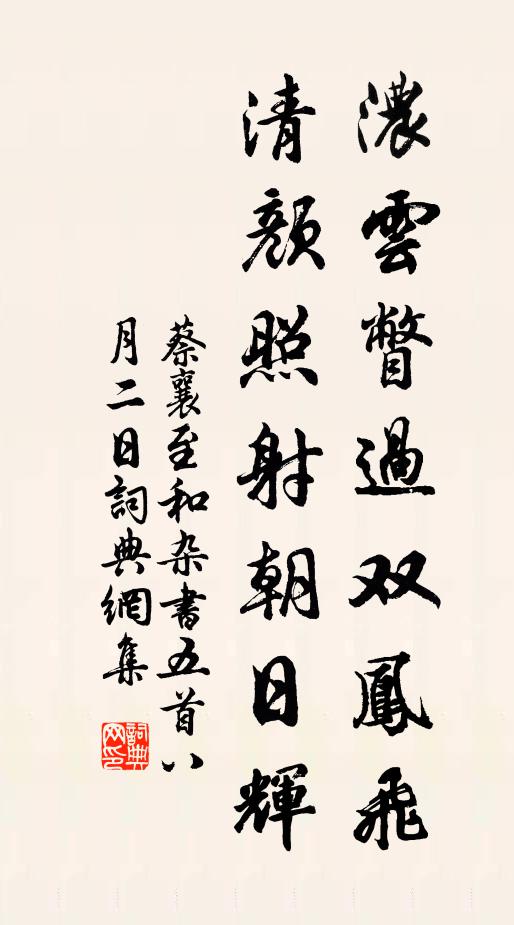 濃雲瞥過双鳳飛
清顔照射朝日輝
蔡襄至和杂書五首八
月二日詞典網集
詞典
网印